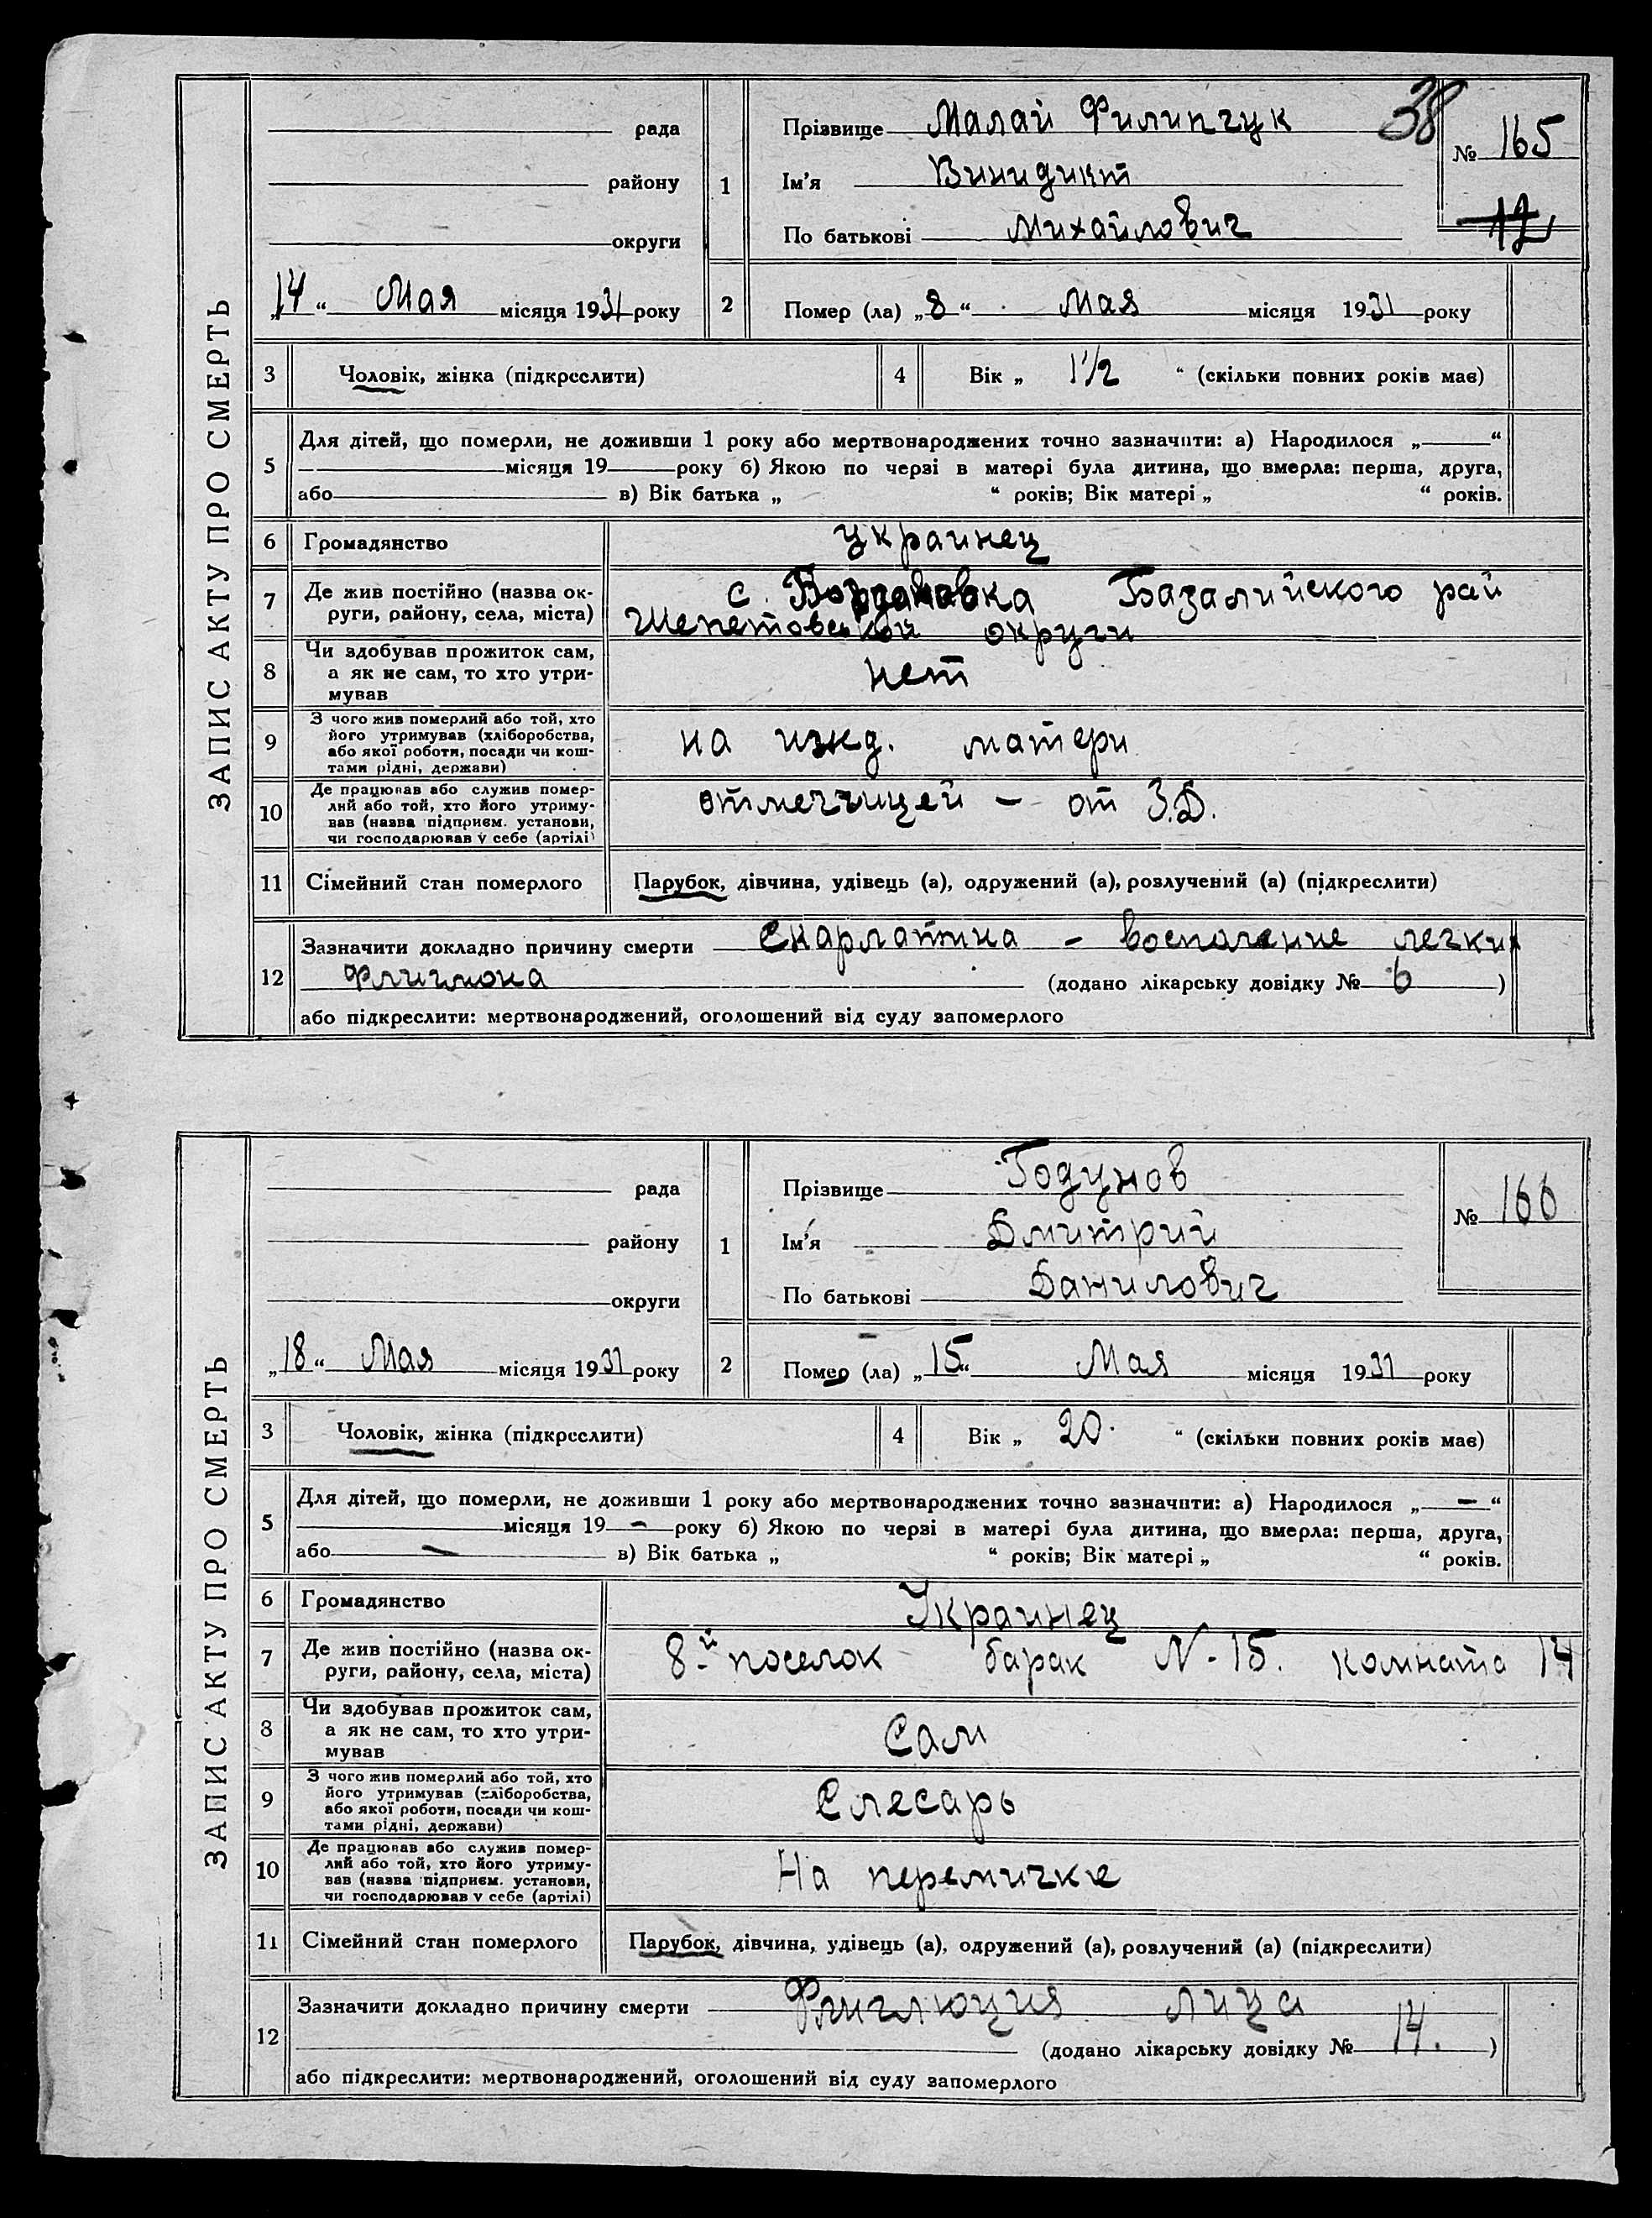 ЗАПИС АКТУ ПРО СМЕРТЬ
38
рада
району
округи
„14“ Мая місяця 1931 року
1
Прізвище Малай Филипчук
Ім’я Винидикт
По батькові Михайлович
№ 165
12
2 Помер (ла) „8“ Мая місяця 1931 року
3 Чоловік, жінка (підкреслити)
4 Вік „ 1 1/2 “ (скільки повних років має)
5 Для дітей, що померли, не доживши 1 року або мертвонароджених точно зазначити: а) Народилося „ “
місяця 19 року б) Якою по черзі в матері була дитина, що вмерла: перша, друга,
або в) Вік батька „ “ років; Вік матері „ “ років.
6 Громадянство украинец
7 Де жив постійно (назва ок-
руги, району, села, міста)
с. Базалийского рай
Шепетовской округи
8 Чи здобував прожиток сам,
а як не сам, то хто утри-
мував
нет
9 З чого жив померлий або той, хто
його утримував (хліборобства,
або якої роботи, посади чи кош-
тами рідні, держави)
на ижд. матери
10 Де працював або служив помер-
лий або той, хто його утриму-
вав (назва підприєм. установи,
чи господарював у себе (артілі)
отметчицей – от З.Д.
11 Сімейний стан померлого Парубок, дівчина, удівець (а), одружений (а), розлучений (а) (підкреслити)
12 Зазначити докладно причину смерти Скарлатина – воспаление легких
Флигмона (додано лікарську довідку № 6 )
або підкреслити: мертвонароджений, оголошений від суду запомерлого
ЗАПИС АКТУ ПРО СМЕРТЬ
рада
району
округи
„18“ Мая місяця 1931 року
1
Прізвище Годунов
Ім’я Дмитрий
По батькові Данилович
№ 166
2 Помер (ла) „15“ Мая місяця 1931 року
3 Чоловік, жінка (підкреслити)
4 Вік „ 20. “ (скільки повних років має)
5 Для дітей, що померли, не доживши 1 року або мертвонароджених точно зазначити: а) Народилося „ – “
місяця 19 – року б) Якою по черзі в матері була дитина, що вмерла: перша, друга,
або – в) Вік батька „ “ років; Вік матері „ “ років.
6 Громадянство Украинец
7 Де жив постійно (назва ок-
руги, району, села, міста)
8-й поселок барак N-15. комната 14
8 Чи здобував прожиток сам,
а як не сам, то хто утри-
мував
Сам
9 З чого жив померлий або той, хто
його утримував (хліборобства,
або якої роботи, посади чи кош-
тами рідні, держави)
Слесарь
10 Де працював або служив помер-
лий або той, хто його утриму-
вав (назва підприєм. установи,
чи господарював у себе (артілі)
На перемичке
11 Сімейний стан померлого Парубок, дівчина, удівець (а), одружений (а), розлучений (а) (підкреслити)
12 Зазначити докладно причину смерти лица
(додано лікарську довідку № 14. )
або підкреслити: мертвонароджений, оголошений від суду запомерлого